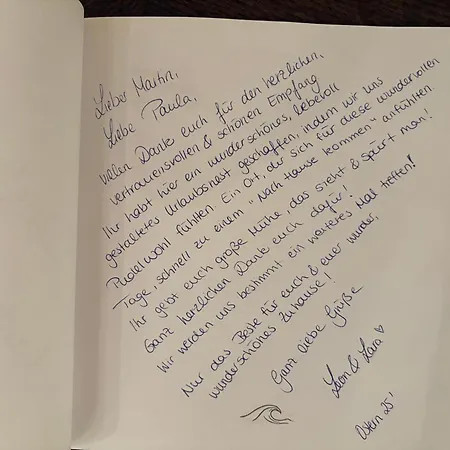 Lieber Martin,
Liebe Paula,
vielen Dank euch für den herzlichen,
vertrauensvollen & schönen Empfang
Ihr habt hier ein wunderschönes, liebevoll
gestaltetes Urlaubsnest geschaffen, indem wir uns
Pudelwohl fühlten. Ein Ort, der sich für diese wundervollen
Tage, schnell zu einem "Nach Hause kommen" anfühlten.
Ihr gebt euch große Mühe, das sieht & spürt man!
Ganz herzlichen Dank euch dafür!
Wir werden uns bestimmt ein weiteres Mal treffen!
Nur das Beste für euch & euer wunder,
wunderschönes Zuhause!
Ganz liebe Grüße
Leon & Lara ♡
Ostern 25'